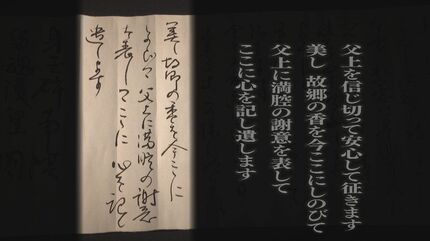 父上を信じ切って安心して征きます
美し 故郷の香を今ここにしのびて
父上に満腔の謝意を表して
ここに心を記し遺します
美し故郷の香を今ここに
しのびて父上に満腔の謝意
を表してここに心を記し
遺します